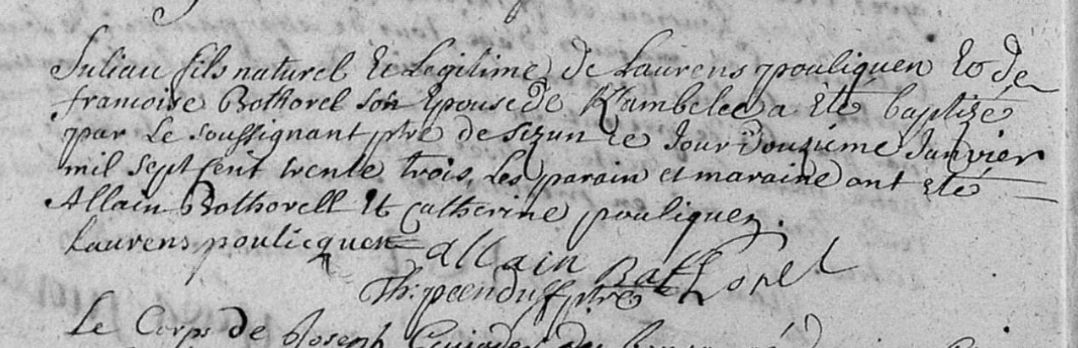 Juliau fils naturel et Legitime de Laurens pouliquen et de
francoise Bothorel son Epouse de K/ambelec a été baptizé
par Le soussignant ptre de sizun ce Jour Douziéme Janvier
mil sept cent trente trois, Les parain et maraine ont eté
Allain Bothorell et Catherine pouliquen.
Laurens poulicquen allain Bothorel
Th: peenduff ptre
Le Corps de Joseph